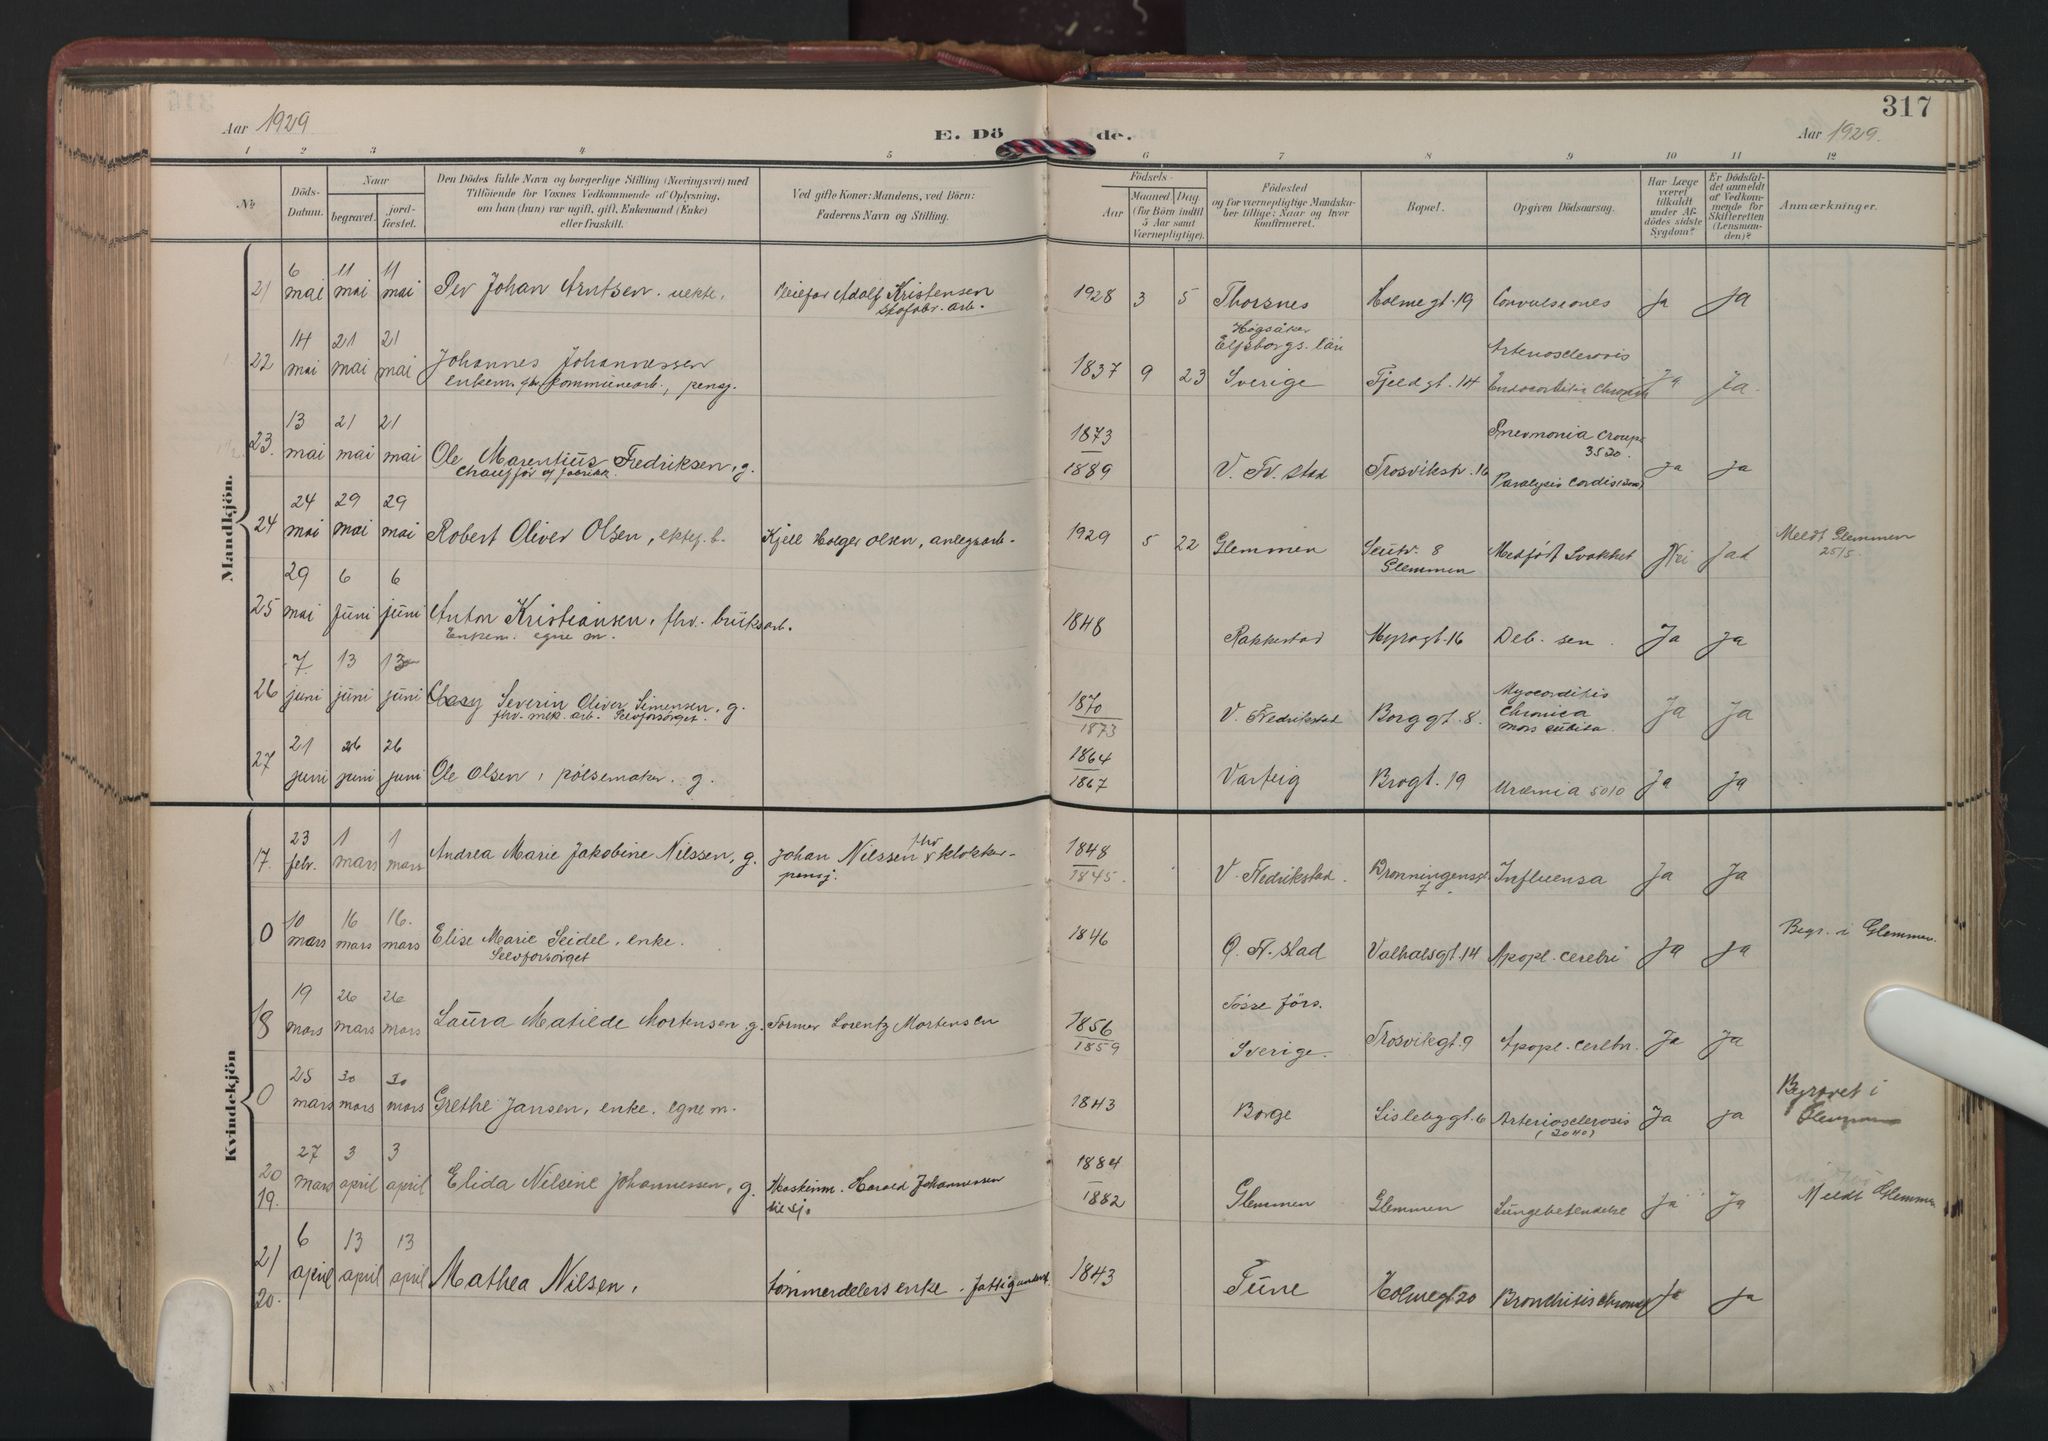 317
Aar 1929
E. Dö
de.
Aar 1929.
1 2 3 4 5 6 7 8 9 10 11 12
No
Döds-
Datum.
Naar
begravet.
jord-
fæstet.
Den Dödes fulde Navn og borgerlige Stilling (Næringsvei) med
Tilföiende for Voxnes Vedkommende af Oplysning,
om han (hun) var ugift, gift, Enkemand (Enke)
eller fraskilt.
Ved gifte Koner: Mandens, ved Börn:
Faderens Navn og Stilling.
Födsels-
Aar
Maaned Dag.
(for Börn indtil
5 Aar samt
Værnepligtige).
Födested
og for værnepligtige Mandska-
ber tillige: Naar og hvor
konfirmeret.
Bopæl.
Opgiven Dödsaarsag.
Har Læge
været
tilkaldt
under Af-
dödes sidste
Sygdom?
Er Dödsfal-
det anmeldt
af Vedkom-
mende for
Skifteretten
(Lensman-
den)?
Anmærkninger.
Mandkjön.
21 6 mai 11 mai 11 mai Per Johan Arntsen. uekte. Pleiefar Adolf Kristensen
skofabr. arb. 1928 3 5 Thorsnes Holmegt. 19 Convulsiones Ja Ja
22 14 mai 21 mai 21 mai Johannes Johannessen
enkem. fhv. kommunearb., pensj. 1837 9 23 Högsåker
Elfsborgs. län
Sverige Fjeldgt. 14 Arteriosclerosis
Endocarditis Chronica Ja Ja.
23. 13 mai 21 mai 21 mai Ole Marentius Fredriksen, g.
Chauffør 1873
1889 V. Fr. stad Trosvikstr. 16 Pnevmonia croup.
3520.
Paralysis Cordis Ja Ja
24 24 mai 29 mai 29 mai Robert Oliver Olsen, ektef. b. Kjell Holger Olsen, anlegsarb. 1929 5 22 Glemmen 8
Glemmen Medfødt Svakhet Nei Jad Meldt Glemmen
25/5
25 29 mai 6 juni 6 juni Anton Kristiansen, fhv. bruksarb.
Enkem. egne m. 1848 Rakkestad Myragt. 16 Deb. sen. Ja Ja
26 7. juni 13 juni 13 juni Severin Oliver Simensen, g.
fhv. mek. arb. Selvforsørget. 1870
1873 V. Fredrikstad Borggt. 8. Myocarditis
Chronica
mors subita. Ja Ja
27 21 juni 26 juni 26 juni Ole Olsen, pølsemaker. g. 1864
1867 Varteig Brogt. 19 Uræmia 5010 Ja Ja
Kvindekjön
17. 23 febr. 1 mars 1 mars Andrea Marie Jakobine Nilssen, g. Johan Nilssen fhv klokker-
pensj. 1848
1845. V. Fredrikstad. Dronningensgt.
7 Influensa Ja Ja
0 10 mars 16 mars 16. mars Elise Marie Seidel, enke.
Selvforsørget 1846 Ö. Fr. stad Valhalsgt. 14 Apopl. cerebri Ja Ja Begr. i Glemmen.
18 19 mars 26 mars 26 mars Laura Matilde Mortensen, g. Former Lorentz Mortensen 1856
1859 Tösse förs.
Sverige. Trosvikgt. 9 Apopl. cerebr. Ja Ja
0 25 mars 30 mars 30 mars Grethe Jansen, enke. egne m. 1843 Borge Lislebygt. 6 Arteriosclerosis
(2040) Ja Ja Begravet i
Glemmen
20
19. 27 mars 3 april 3 april Elida Nilsine Johannessen, g. Maskinm. Harald Johannessen
til sj. 1884
1882 Glemmen Glemmen Lungebetendelse Ja Ja Meldt Glemmen
21
20. 6 april 13 april 13 april Mathea Nilsen, tømmerdelers enke. fattigunderst. 1843 Tune Holmegt 20 Bronchitis chronica Ja Ja